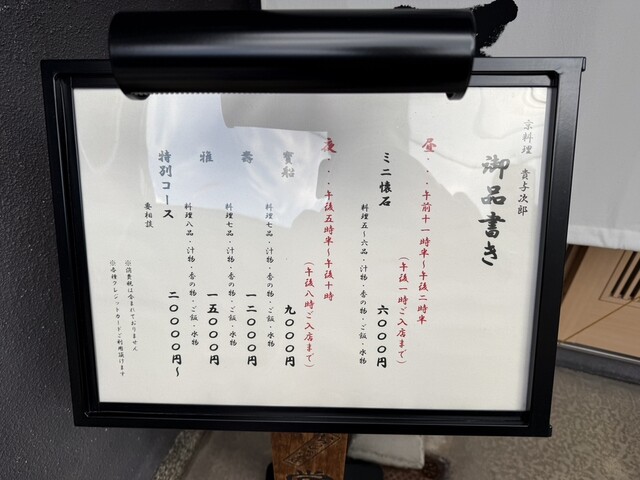 京料理 貴与次郎
御品書き
昼・・・午前十一時半~午後二時半
(午後一時ご入店まで)
ミニ懐石
料理五~六品・汁物・香の物・ご飯・水物
六000円
夜・・・午後五時半~午後十時
(午後八時ご入店まで)
宝船
九000円
料理七品・汁物・香の物・ご飯・水物
寿
一二000円
料理七品・汁物・香の物・ご飯・水物
雅
一五000円
料理八品・汁物・香の物・ご飯・水物
特別コース
二0000円~
要相談
※消費税は含まれておりません
※各種クレジットカードご利用頂けます